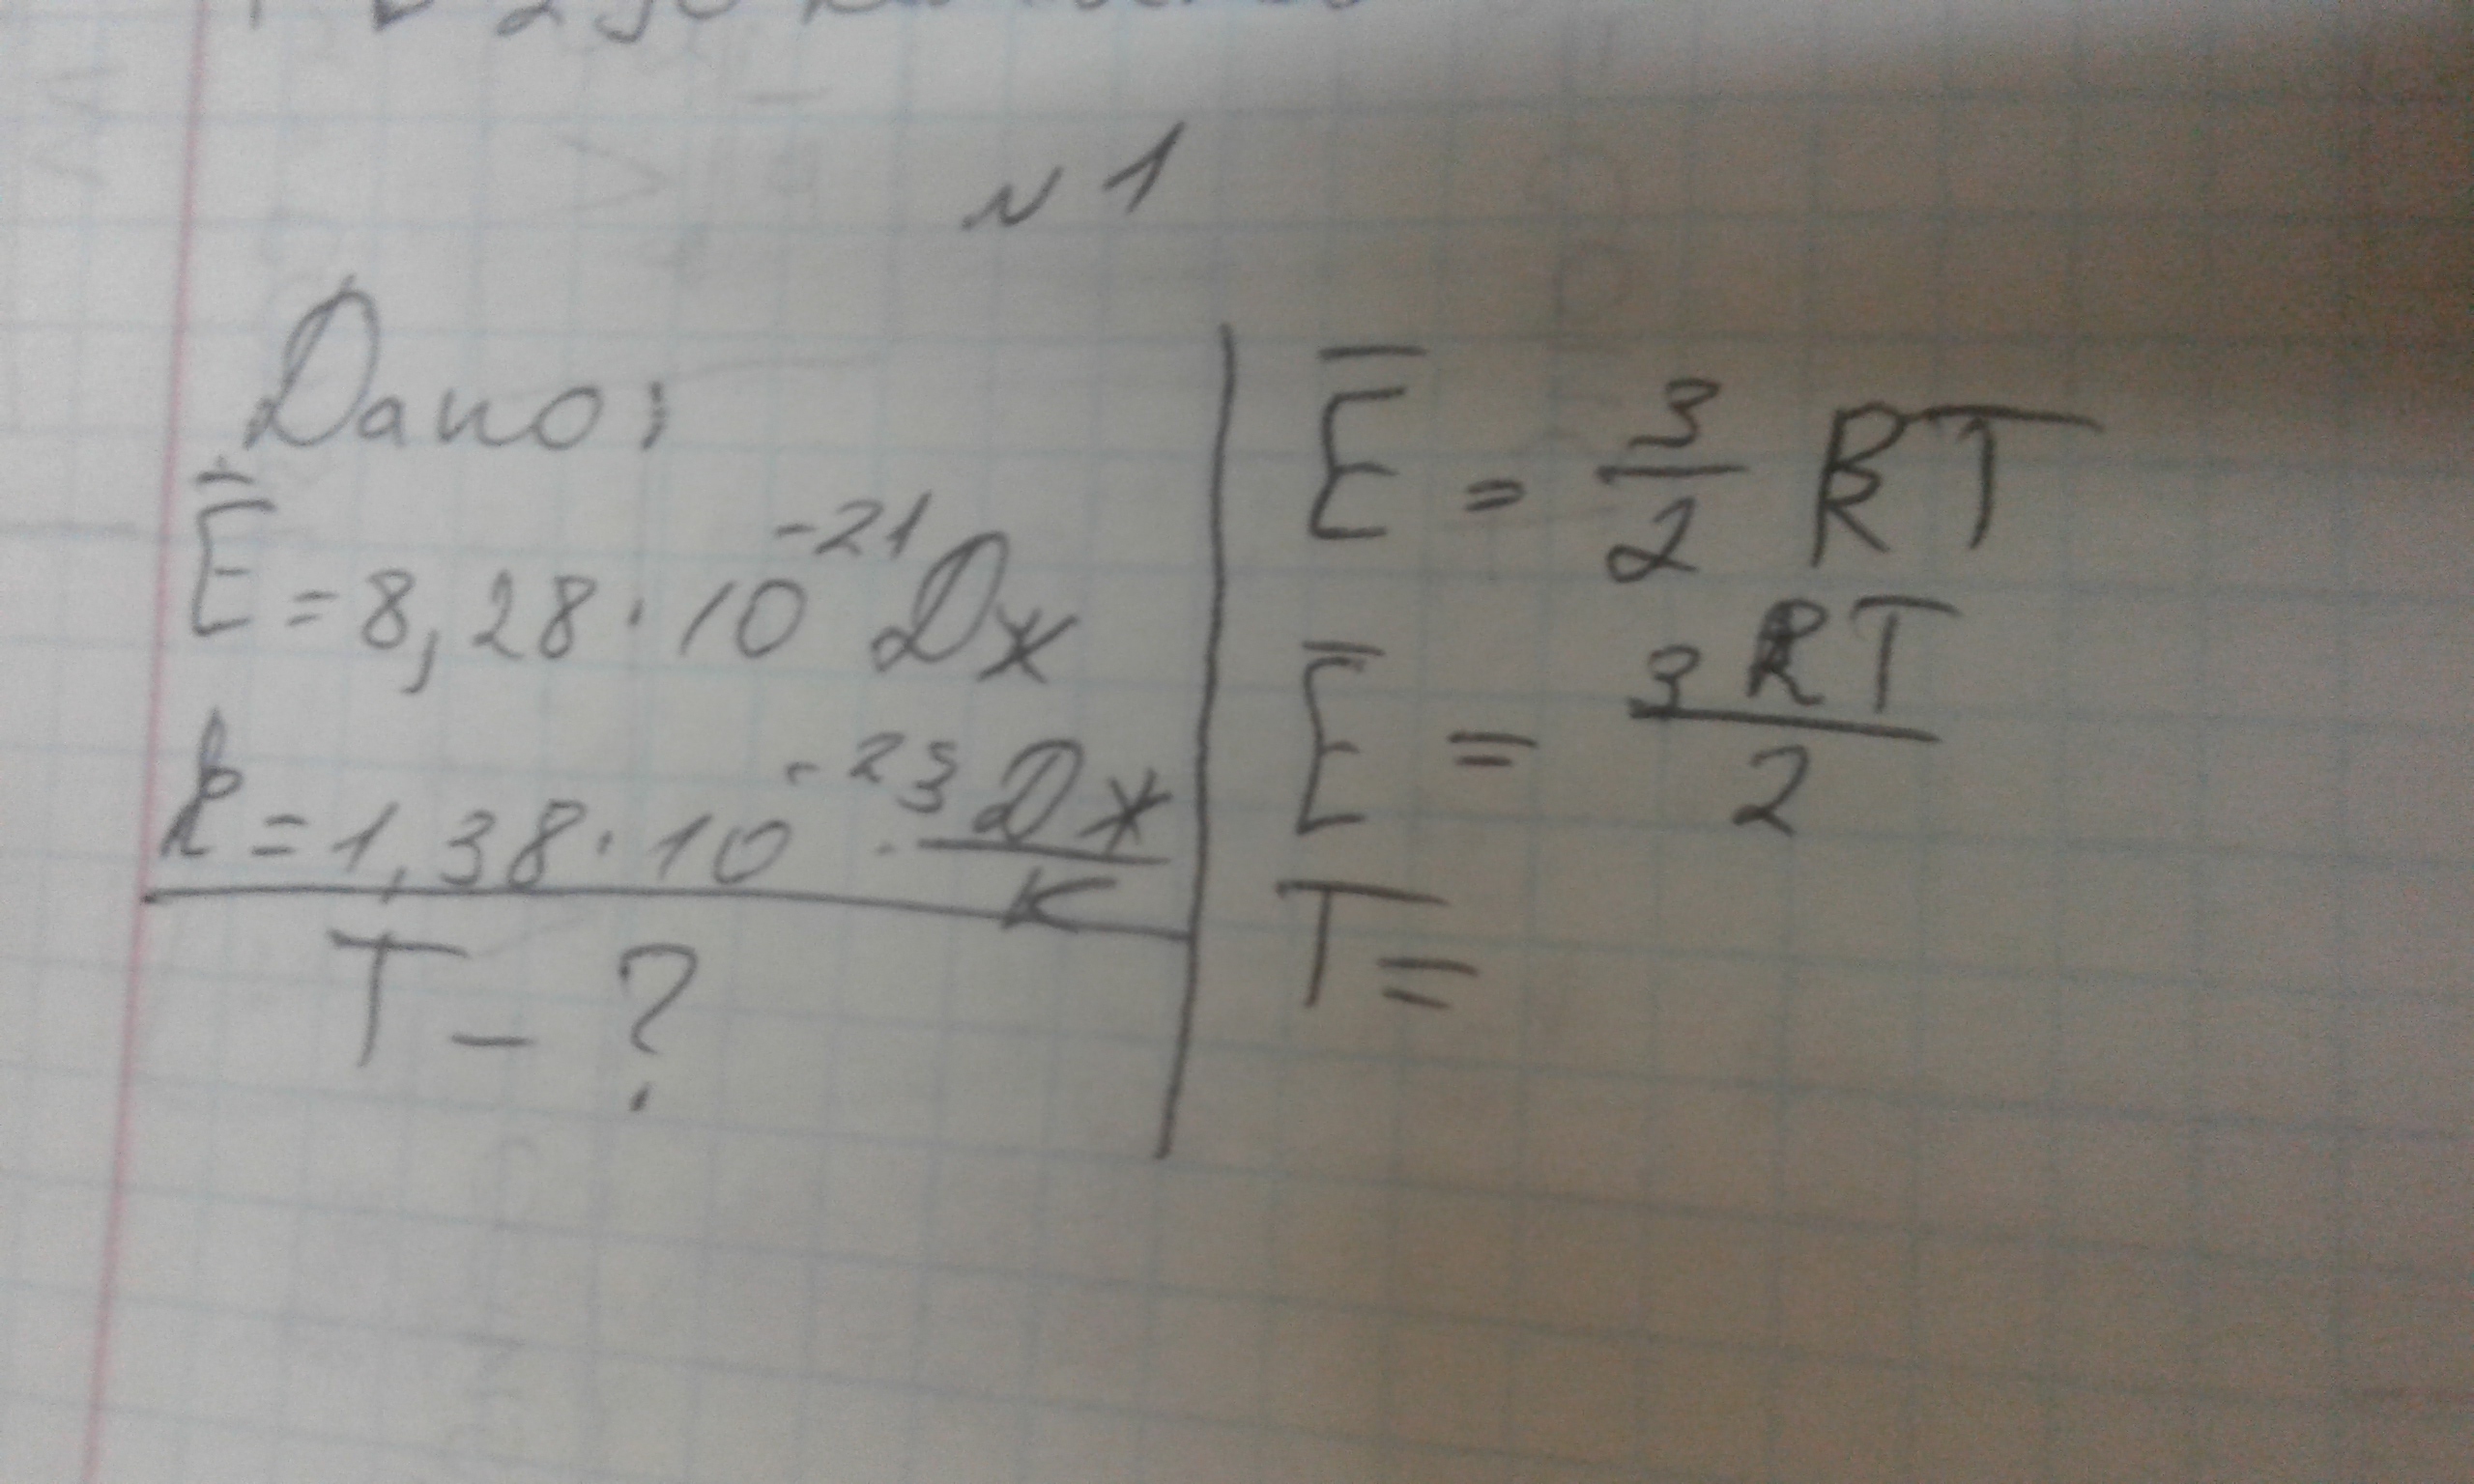 № 1
Дано:
E̅ = 8,28 · 10⁻²¹ Дж
k = 1,38 · 10⁻²³ · Дж/К
T – ?
E̅ = 3/2 kT
E̅ = 3kT/2
T =